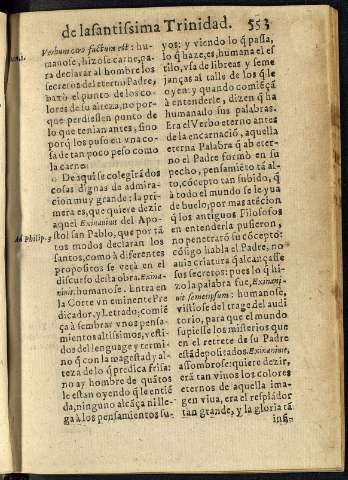 de la santissima Trinidad. 553
Verbum caro factum est: hu-
manose, hizose carne, pa-
ra declarar al hombre los
secretos del eterno Padre,
baxò el punto de los co-
lores de su alteza, no por-
que perdiessen punto de
lo que tenian antes, sino
porq̃ los puso en vna co-
sa de tan poco peso como
la carne.
De aqui se colegirà dos
cosas dignas de admira-
cion muy grande: la pri-
mera es, que quiere dezir
aquel Exinaniuit del Apo-
Ad Philip. 2
stol san Pablo, que por tã
tos modos declaran los
santos, como à diferentes
propositos se verà en el
discurso desta obra. Exina-
niuit: humanose. Entra en
la Corte vn eminente Pre
dicador, y Letrado; comiẽ
ça à sembrar vnos pensa-
mientos altissimos, vesti-
dos del lenguage y termi-
no q̃ con la magestad y al-
teza de lo q̃ predica frisa:
no ay hombre de quãtos
le estan oyendo q̃ le entiẽ
da, ninguno alcãça ni lle-
ga à los pensamientos su-
yos: y viendo lo q̃ passa,
lo q̃ haze, es, humana el es
tilo, vsa de libreas, y seme
janças al talle de los q̃ le
oyen: y quando comiẽçã
à entenderle, dizen q̃ ha
humanado sus palabras.
Era el Verbo eterno antes
de la encarnaciõ, aquella
eterna Palabra q̃ ab eter-
no el Padre formò en su
pecho, pensamiẽto tã al-
to, cõcepto tan subido, q̃
à todo el mundo se le yua
de buelo, por mas atẽcion
q̃ los antiguos Filosofos
en entenderla pusieron,
no penetraro su cõcepto:
cõ ella hablò el Padre, no
auia criatura q̃ alcançasse
sus secretos: pues lo q̃ hi-
zo la palabra fue, Exinani-
uit semetipsum: humanose,
vistiose del trage del audi
torio, para que el mundo
supiesse los misterios que
en el retrete de su Padre
està depositados. Exinaniuit,
assombrose: quiere dezir,
erã tan viuos los colores
eternos de aquella ima-
gen viua, era el resplãdor
tan grande, y la gloria tã
ins-